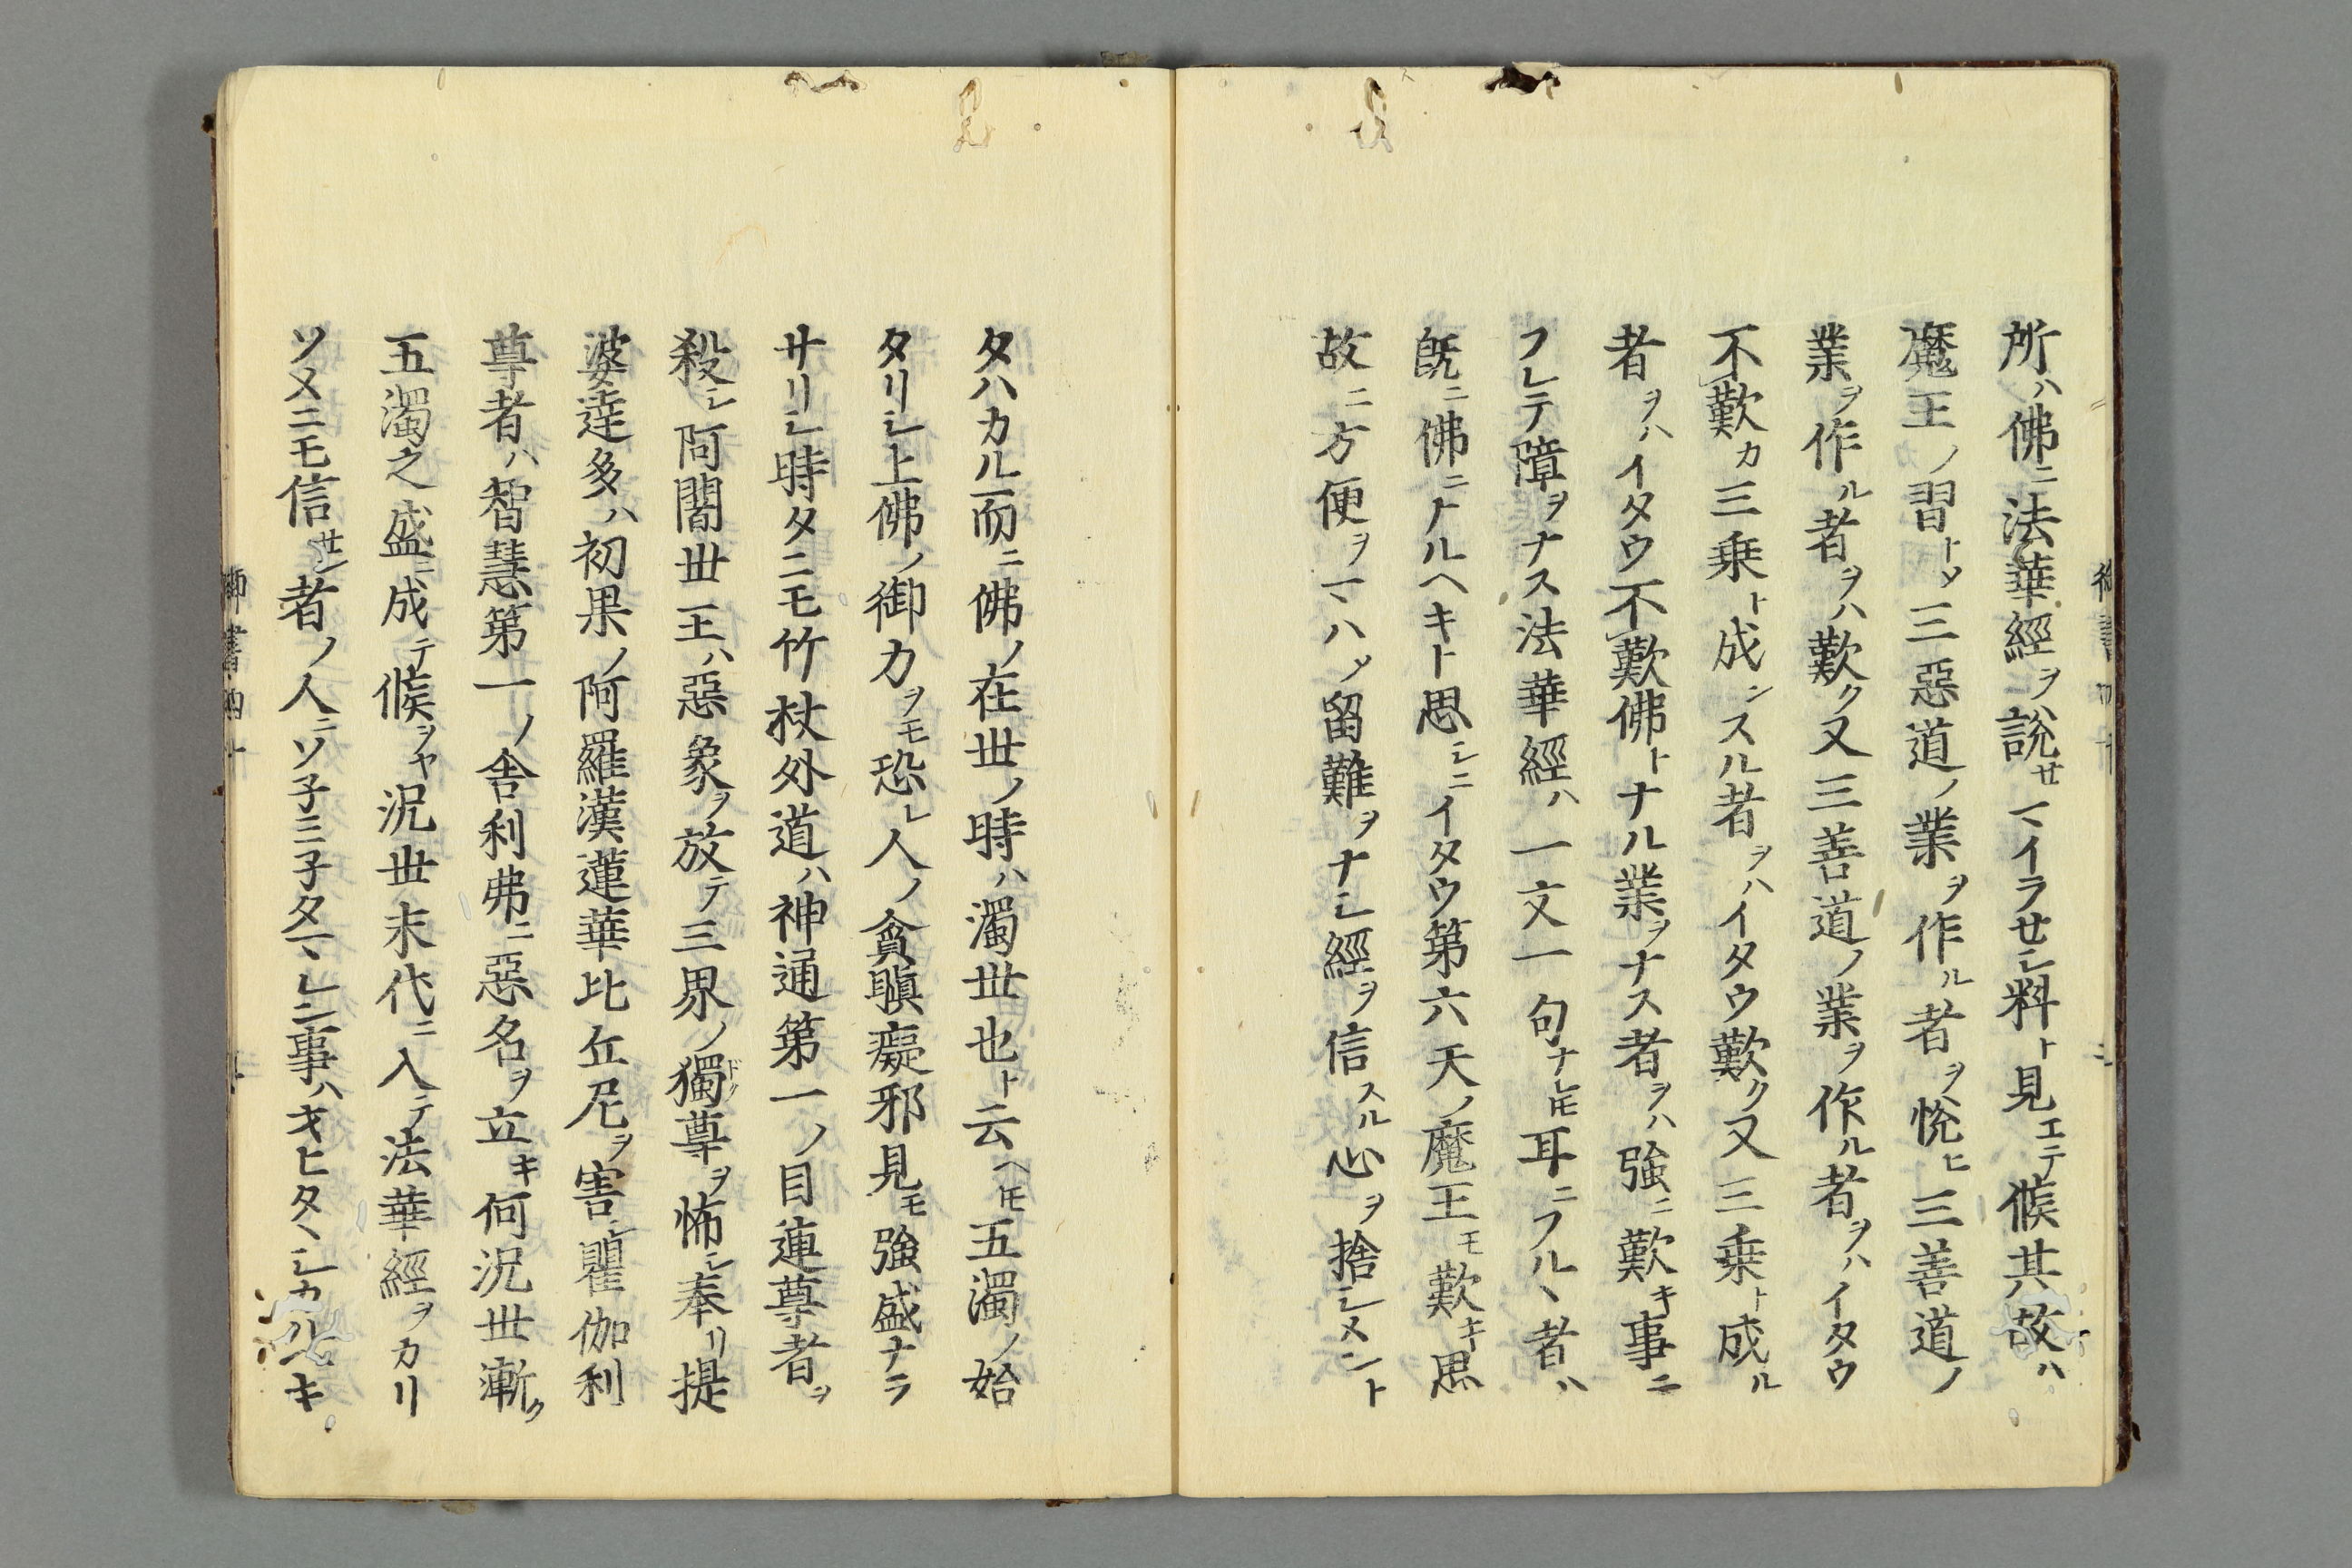 所ハ佛ニ法華經ヲ説セマイラせシ料ト見エテ候其故ハ
魔王ノ習トメ三惡道ノ業ヲ作ル者ヲ悅ヒ三善道ノ
業ヲ作ル者ヲハ歎ク又三善道ノ業ヲ作ル者ヲハイタウ
不歎カ三乗ト成ンスル者ヲハイタウ歎ク又三乗ト成ル
者ヲハイタウ不歎佛トナル業ヲナス者ヲハ強ニ歎キ事ニ
フレテ障ヲナス法華經ハ一文一句ナレ𪜈耳ニフルヽ者ハ
既ニ佛ニナルヘキト思シニイタウ第六天ノ魔王モ歎キ思
故ニ方便ヲマハメ留難ヲナシ經ヲ信スル心ヲ捨シメント
タハカル而ニ佛ノ在世ノ時ハ濁世也ト云ヘ𪜈五濁ノ始
タリシ上佛ノ御力ヲモ恐レ人ノ貪瞋癡邪見モ強盛ナラ
サリシ時タニモ竹杖外道ハ神通第一ノ目連尊者ヲ
殺シ阿闍世王ハ惡象ヲ放テ三界ノ獨尊ヲ怖シ奉リ提
婆達多ハ初果ノ阿羅漢蓮華比丘尼ヲ害シ瞿伽利
尊者ハ智慧第一ノ舎利弗ニ惡名ヲ立キ何況世漸ク
五濁之盛ニ成テ候ヲヤ況世末代ニ入テ法華經ヲカリ
ソメニモ信せン者ノ人ニソ子ミ子タマレン事ハヲヒタヽシカルヘキ